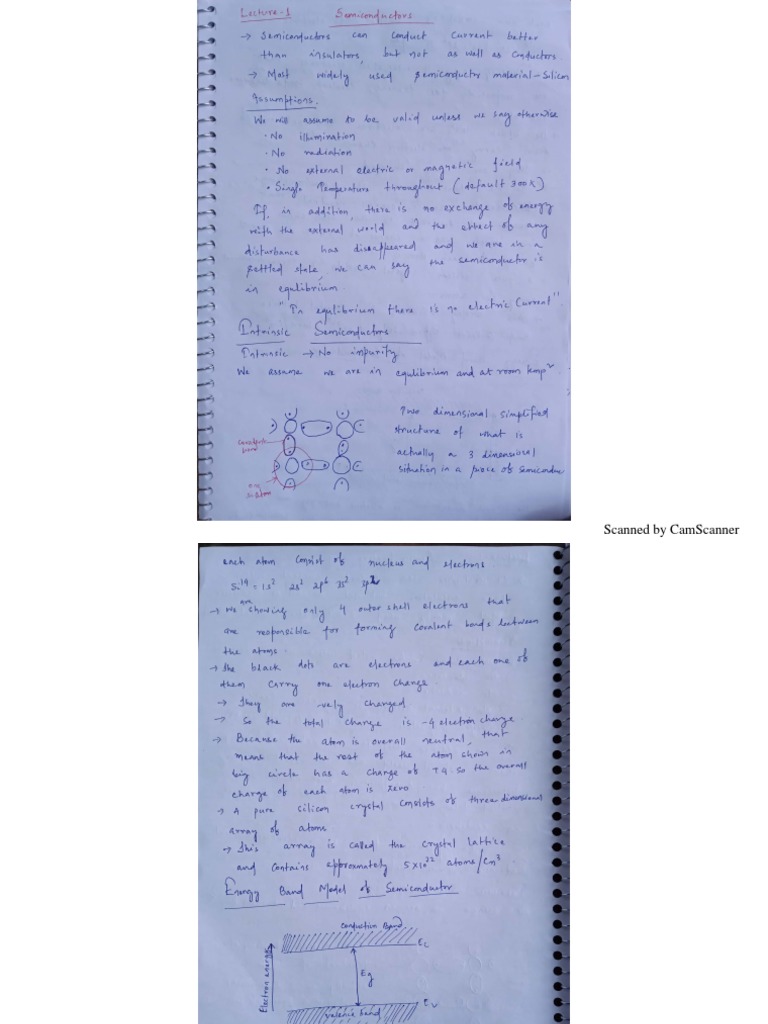 Lecture-1 Semiconductors
→ Semiconductors can conduct current better
than insulators, but not as well as conductors.
→ Most widely used semiconductor material - Silicon
Assumptions.
We will assume to be valid unless we say otherwise
· No illumination
· No radiation
· No external electric or magnetic field
· Single Temperature throughout (default 300K)
If, in addition, there is no exchange of energy
with the external world and the effect of any
disturbance has disappeared and we are in a
settled state, we can say the semiconductor is
in equlibrium.
"In equlibrium there is no electric current".
Intrinsic Semiconductors
Intrinsic → No impurity
We assume we are in equlibrium and at room temp
Two dimensional simplified
structure of what is
actually a 3 dimensional
situation in a piece of semicondu
Covalent
bond
one
si atom
Scanned by CamScanner
each atom consist of nucleus and electrons
Si14 = 1s2 2s2 2p6 3s2 3p2
→ We are showing only 4 outer shell electrons that
are responsible for forming covalent bonds between
the atoms.
→ the black dots are electrons and each one of
them carry one electron charge
→ they are -vely charged
→ So the total charge is -4 electron charge.
→ Because the atom is overall neutral, that
means that the rest of the atom shown in
big circle has a charge of +4. so the overall
charge of each atom is xero
→ A pure silicon crystal consists of three dimensional
array of atoms
→ this array is called the crystal lattice
and contains approxmately 5x10^22 atoms/cm3
Energy Band Model of Semiconductor
Conduction Band
Ec
Electron energy
Eg
Ev
valence band